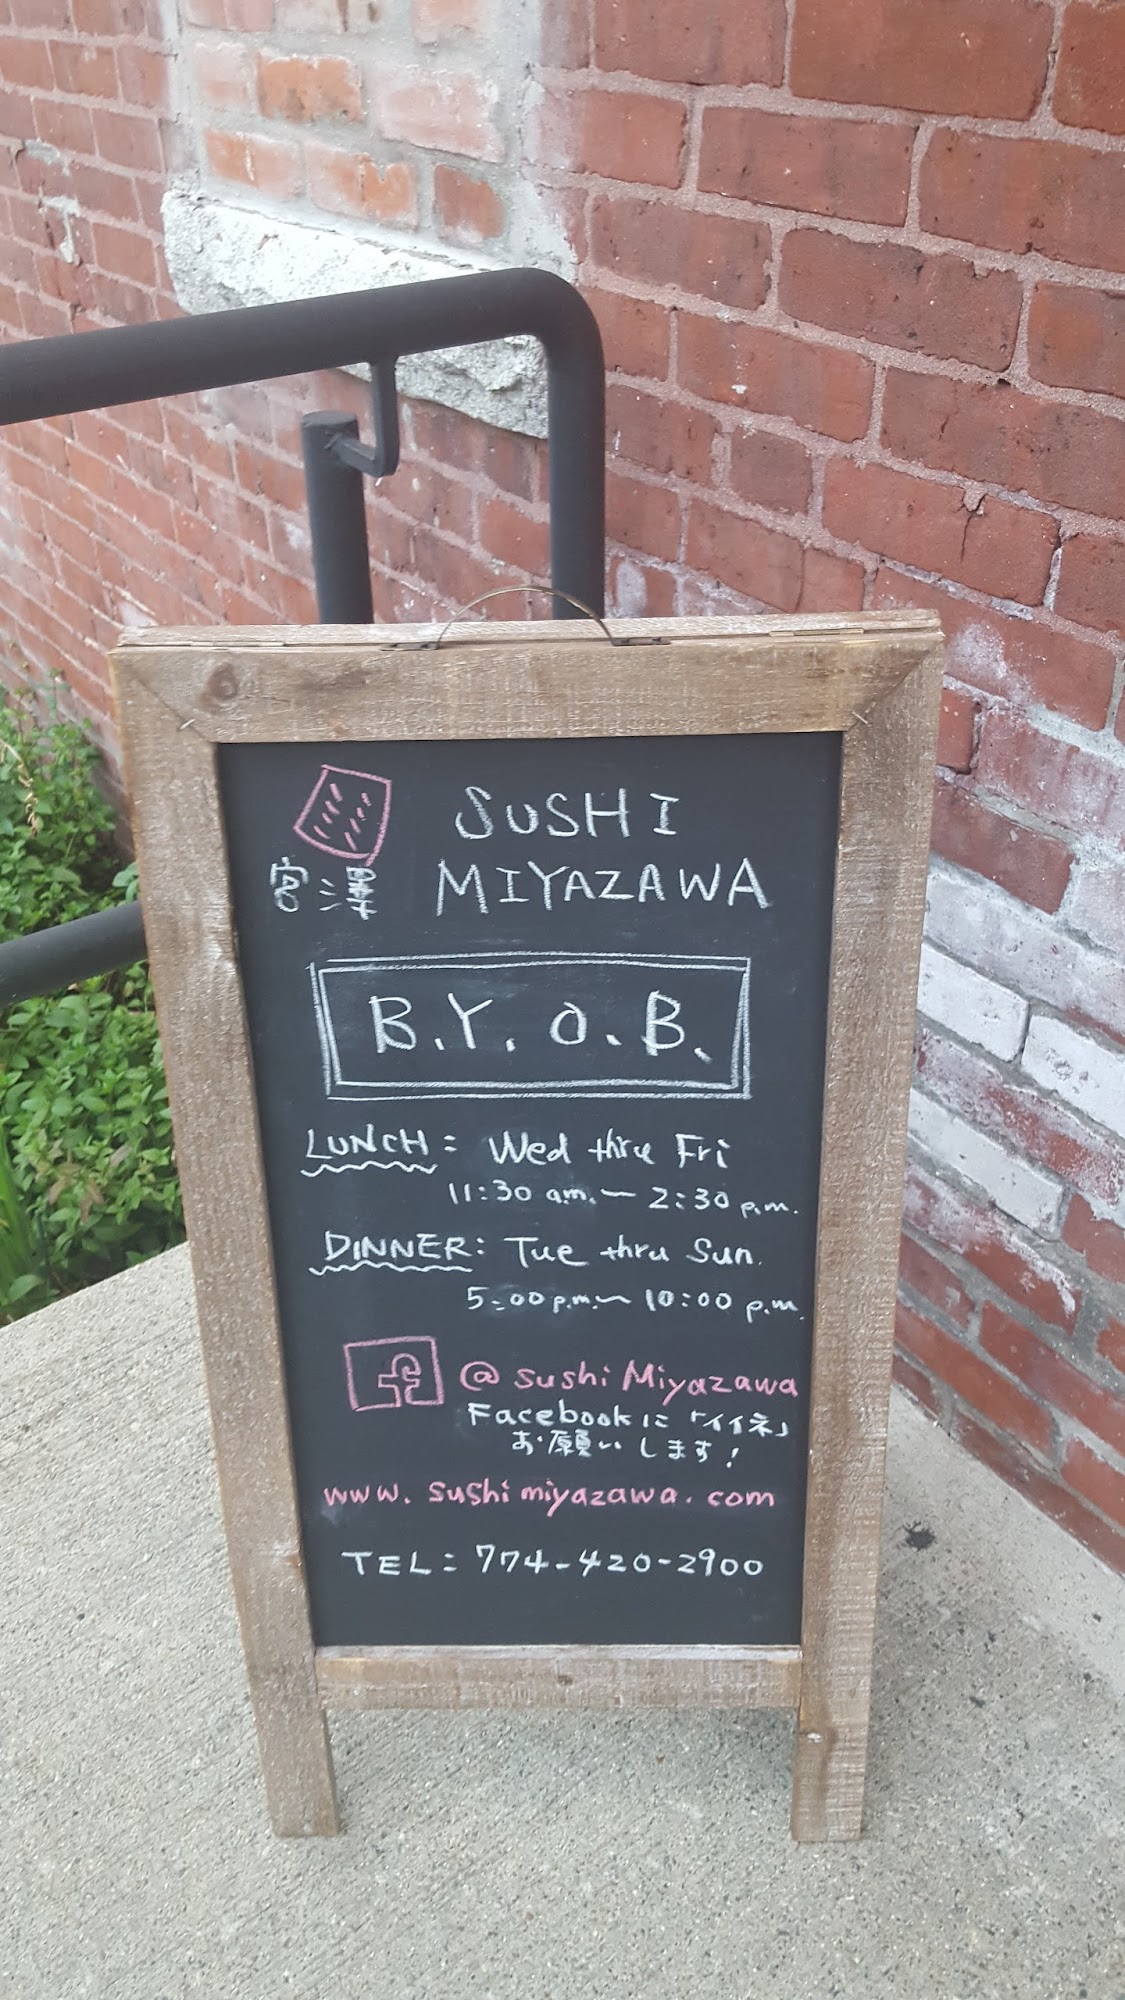 SUSHI
宮澤 MIYAZAWA
B.Y.O.B.
LUNCH: Wed thru Fri
11:30 a.m. ~ 2:30 p.m.
DINNER: Tue thru Sun.
5:00 p.m. ~ 10:00 p.m.
f @sushiMiyazawa
Facebookに「イイネ」
お願いします!
www.sushimiyazawa.com
TEL: 774-420-2900